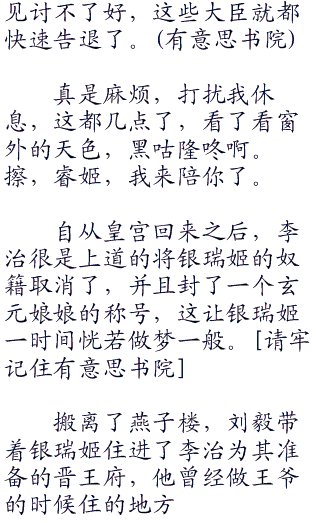 见讨不了好，这些大臣就都
快速告退了。(有意思书院)
真是麻烦，打扰我休
息，这都几点了，看了看窗
外的天色，黑咕隆咚啊。
擦，睿姬，我来陪你了。
自从皇宫回来之后，李
治很是上道的将银瑞姬的奴
籍取消了，并且封了一个玄
元娘娘的称号，这让银瑞姬
一时间恍若做梦一般。[请牢
记住有意思书院]
搬离了燕子楼，刘毅带
着银瑞姬住进了李治为其准
备的晋王府，他曾经做王爷
的时候住的地方